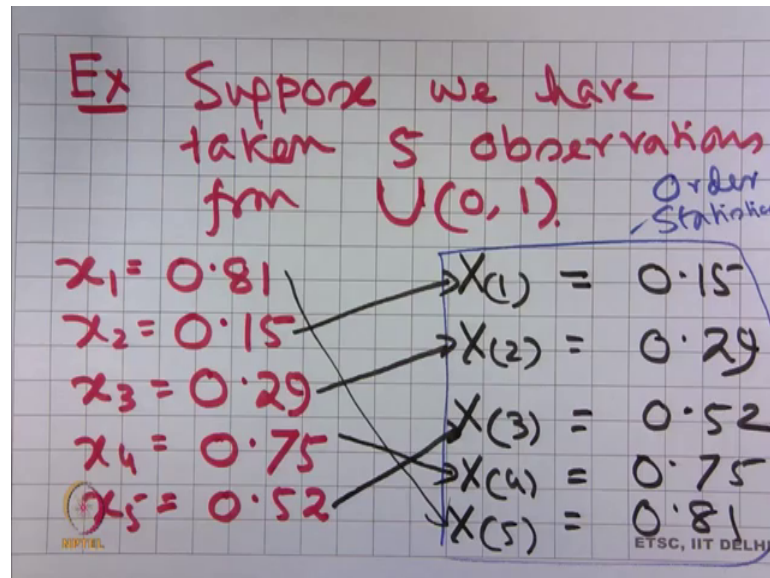 Ex Suppose we have
taken 5 observations
from U(0,1).
Order
Statistic
x1 = 0.81
x2 = 0.15
x3 = 0.29
x4 = 0.75
x5 = 0.52
X(1) = 0.15
X(2) = 0.29
X(3) = 0.52
X(4) = 0.75
X(5) = 0.81
NPTEL
ETSC, IIT DELHI